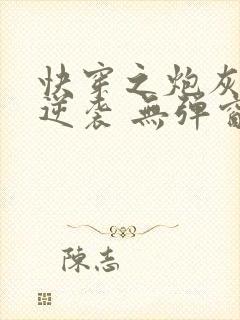 快穿之炮灰
逆袭 無弹窗
陳志